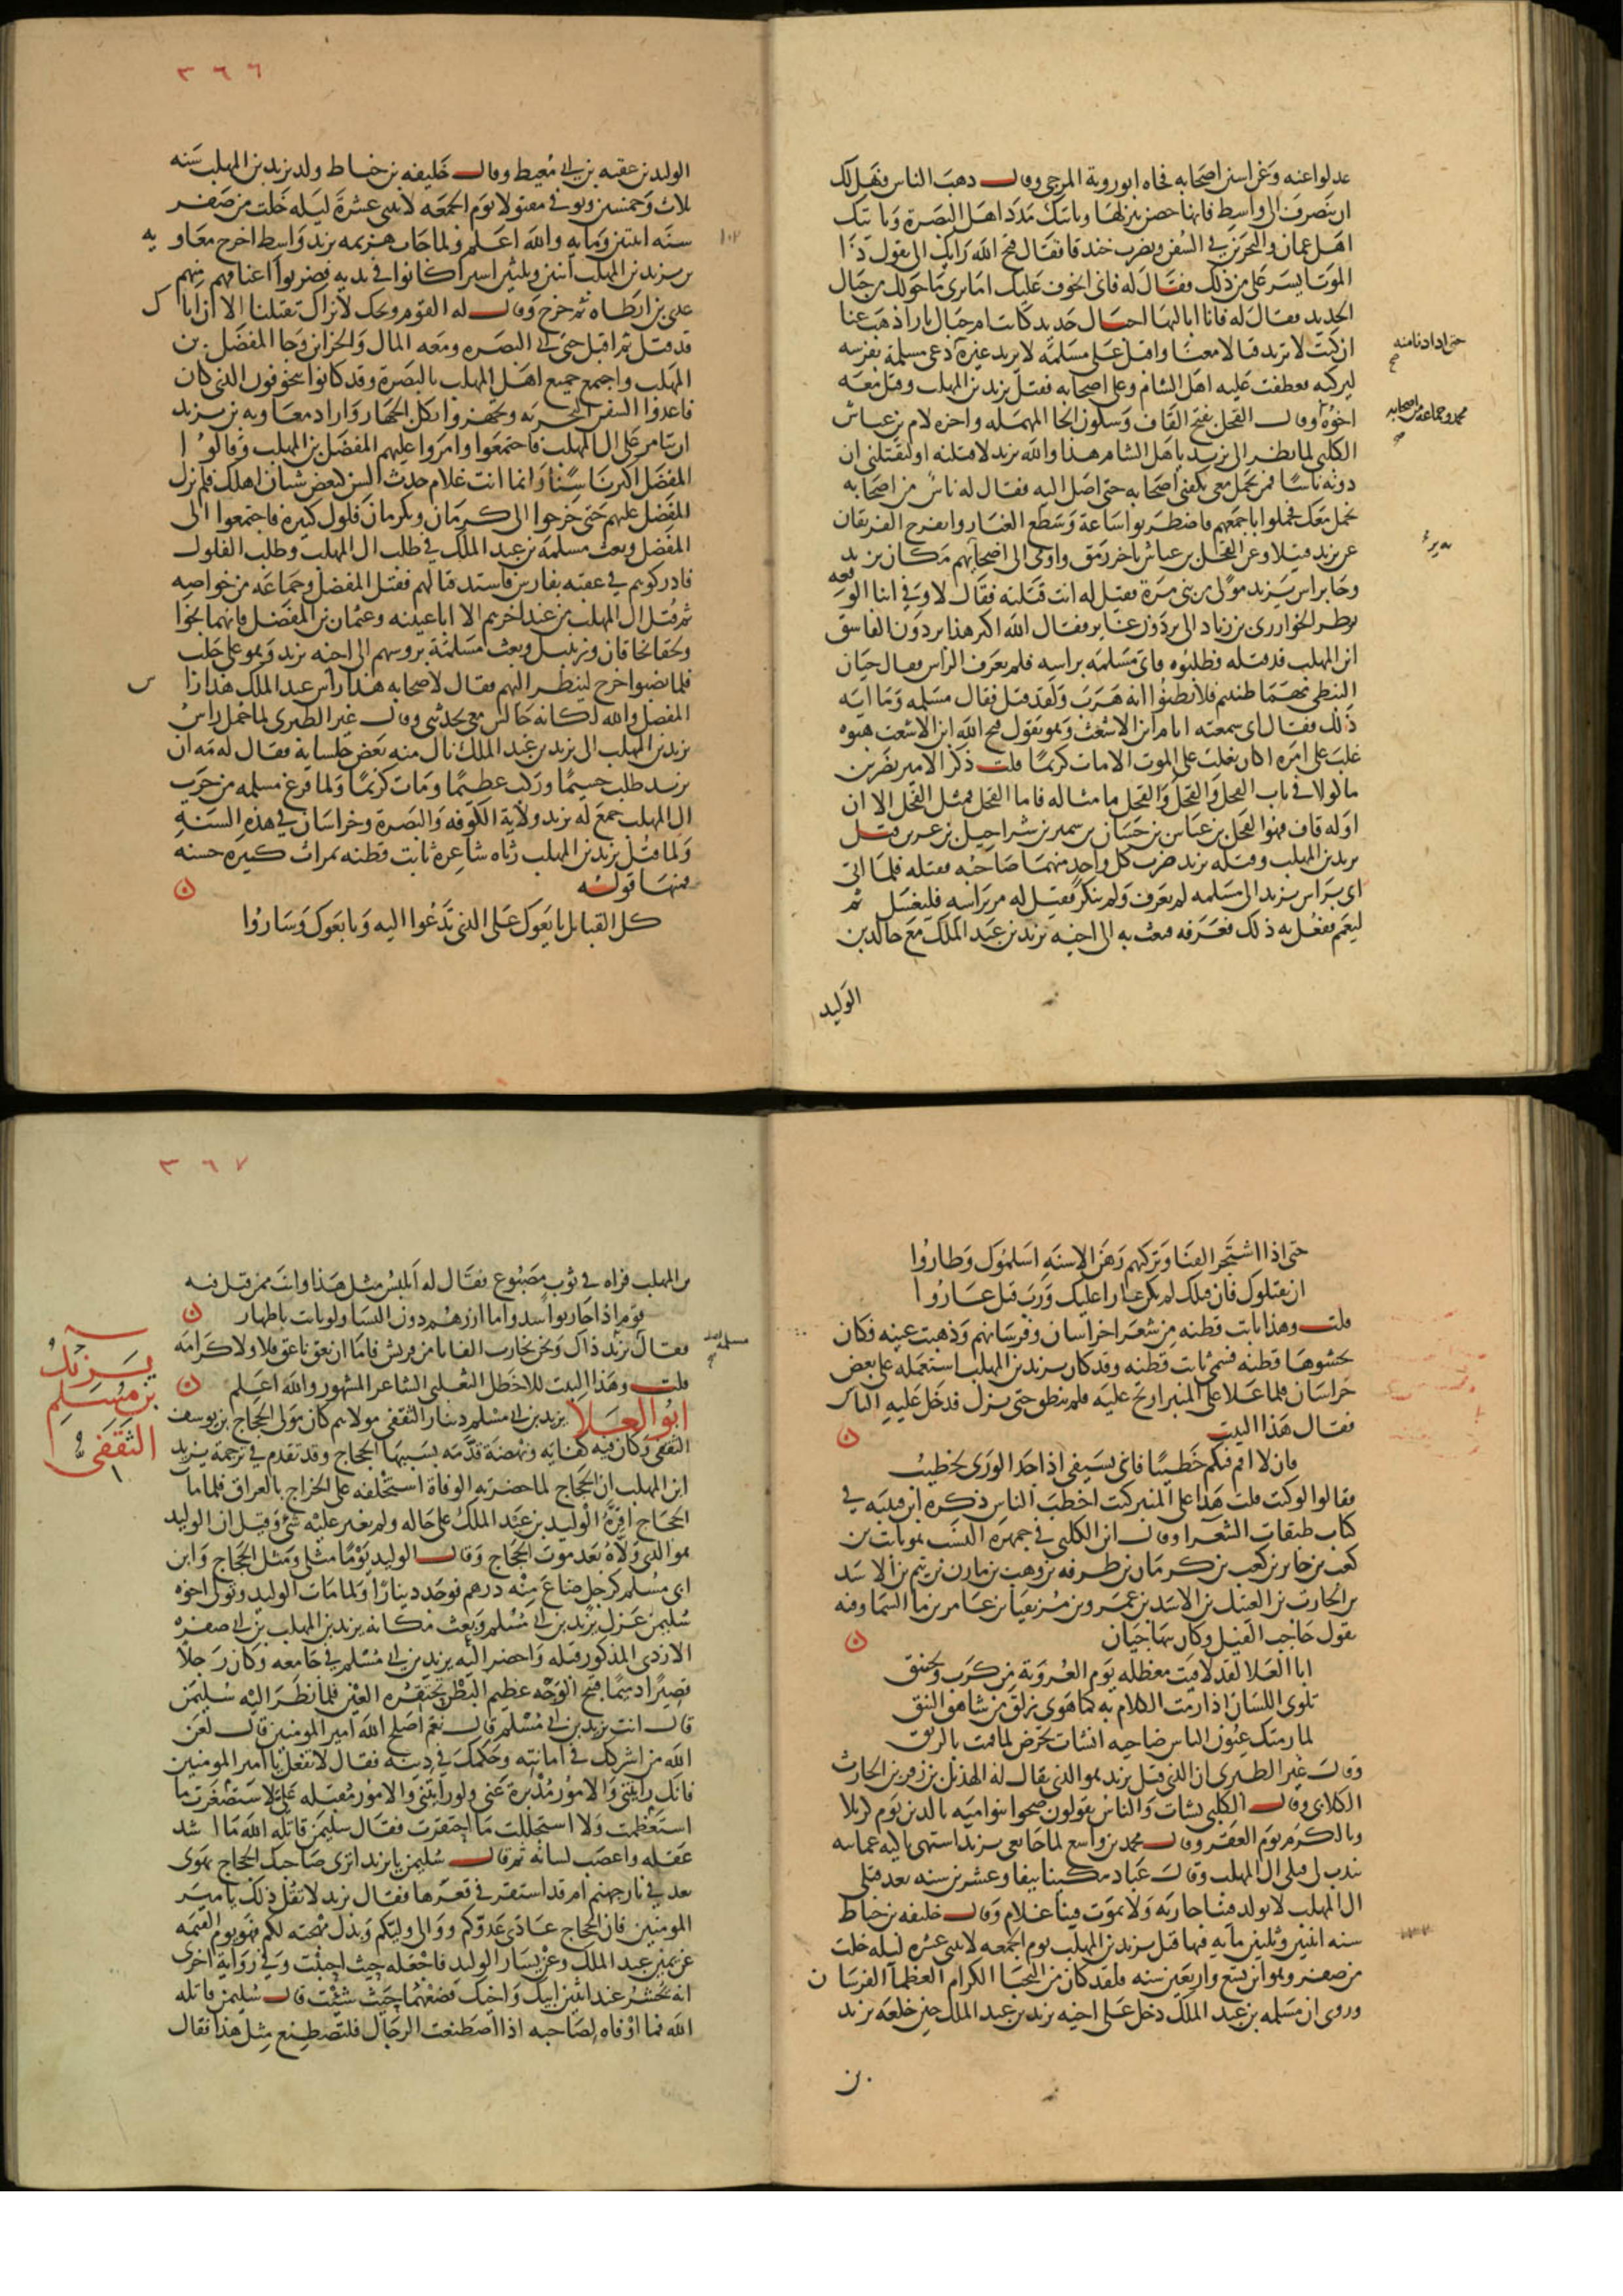 عدلوا عنه وعن اسنن اصحابه فجاه ابو روبة المرجى وقال ذهب الناس فهل لك
ان ننصرف الى واسط فانها حصن ننزلها وياتيك مدد اهل البصرة وياتيك
اهل عمان والبحرين في السفن وتضرب خندقا فقال قبح الله رايك الى تقول ذا
الموت ايسر على من ذلك فقال له فانى اتخوف عليك اما ترى ما حولك من جبال
الحديد فقال له فانا اباليها اجبال حديد كانت ام جبال نار اذهب عنا
ان كنت لا تريد قتالا معنا واقبل على مسلمة لا يريد غيره
حتى اذا دنا منه
دعى مسلمة بفرسه
ليركبه فعطفت عليه اهل الشام وعلى اصحابه فقتل يزيد بن المهلب وقتل معه
اخوه
محمد وجماعة من اصحابه
وقال القحل بفتح القاف وسكون الحا المهملة واخره لام بن عياش
الكلبي لما نظر الى يزيد يا اهل الشام هذا والله يزيد لاقتلنه او ليقتلنى ان
دونه ناسا فمن يحمل معى يكفنى اصحابه حتى اصل اليه فقال له ناس من اصحابه
نحمل معك فحملوا باجمعهم فاضطربوا ساعة وسطع الغبار وانفرج الفريقان
عن يزيد قتيلا وعن القحل بن عياش باخر رمق واومى الى اصحابه يريهم مكان يزيد
وجا براس يزيد مولى لبنى مرة فقيل له انت قتلته فقال لا وفي اثنا الوقعه
نظر الحوارى بن زياد الى برذون عاير فقال الله اكبر هذا برذون الفاسق
ابن المهلب قد قتله فطلبوه فاتى مسلمة براسه فلم يعرف الراس فقال حيان
النبطى مهما ظننتم فلا تظنوا انه هرب ولقد قتل فقال مسلمه وما اية
ذلك فقال انى سمعته ايام ابن الاشعث وهو يقول قبح الله ابن الاشعث هبوه
غلب على امره اكان يغلب على الموت الا مات كريما قلت ذكر الامير نصر بن
ماكولا في باب الفحل والفحل والقحل ما مثاله فاما القحل فمثل الفحل الا ان
اوله قاف فهو القحل بن عياش بن حسان بن سمير بن شراحيل بن عرين قتل
يزيد بن المهلب وقتله يزيد ضرب كل واحد منهما صاحبه فقتله فلما اتى
اى براس يزيد الى مسلمه لم يعرف ولم ينكر فقيل له مر براسه فليغسل ثم
ليعمم ففعل به ذلك فعرفه فبعث به الى اخيه يزيد بن عبد الملك مع خالد بن
الوليد
٣٦٦
الوليد بن عقبه بن ابى معيط وقال خليفه بن خياط ولد يزيد بن المهلب سنه
ثلاث وخمسين وتوفي مقتولا يوم الجمعه لاثنتي عشرة ليله خلت من صفر
سنه اثنتين ومايه والله اعلم ولما جات هزيمه يزيد واسط اخرج معاويه
بن يزيد بن المهلب اثنين وثلثين اسيرا كانوا في يديه فضربوا اعناقهم منهم
عدى بن ارطاه ثم خرج وقال له القوم ويحك لا نراك تقتلنا الا ان اباك
قد قتل ثم اقبل حتى اتى البصره ومعه المال والخزاين وجا المفضل بن
المهلب واجتمع جميع اهل المهلب بالبصرة وقد كانوا يتخوفون الذي كان
فاعدوا السفن البحريه وتجهزوا بكل الجهاز واراد معاويه بن يزيد
ان يتامر على ال المهلب فاجتمعوا وامروا عليهم المفضل بن المهلب وقالوا
المفضل اكبرنا سنا وانما انت غلام حدث السن كبعض شبان اهلك فلم يزل
المفضل عليهم حتى خرجوا الى كرمان وبكرمان فلول كثيرة فاجتمعوا الى
المفضل وبعث مسلمة بن عبد الملك في طلب ال المهلب وطلب الفلول
فادركوهم في عقبه بفارس فاشتد قتالهم فقتل المفضل وجماعه من خواصه
ثم قتل ال المهلب من عند اخرهم الا ابا عيينه وعثمان بن المفضل فانهما نجوا
ولحقا بخاقان ورتبيل وبعث مسلمة بروسهم الى اخيه يزيد وهو على حلب
فلما نصبوا خرج لينظر اليهم فقال لاصحابه هذا راس عبد الملك هذا راس
المفضل والله لكانه جالس معى يحدثني وقال غير الطبرى لما حمل راس
يزيد بن المهلب الى يزيد بن عبد الملك نال منه بعض جلسايه فقال له مه ان
يزيد طلب جسيما وركب عظيما ومات كريما ولما فرغ مسلمه من حرب
ال المهلب جمع له يزيد ولاية الكوفه والبصرة وخراسان في هذه السنة
ولما قتل يزيد بن المهلب رثاه شاعره ثابت قطنه بمراث كثيره حسنه
فمنها قوله
كل القبايل بايعوك على الذى تدعوا اليه وبايعوك وساروا
حتى اذا اشتجر القنا وتركتهم رهن الاسنه اسلموك وطاروا
ان يقتلوك فان قتلك لم يكن عارا عليك ورب قتل عار وا
قلت وهذا ثابت قطنه من شعرا خراسان وفرسانهم وذهبت عينه فكان
يحشوها قطنه فسمى ثابت قطنه وقد كان يزيد بن المهلب استعمله على بعض
خراسان فلما علا على المنبر ارتج عليه فلم ينطق حتى نزل فدخل عليه الناس
فقال هذا البيت
فان لا اقم فيكم خطيبا فانى بسيفى اذا جد الورى لخطيب
فقالوا لو كنت قلت هذا على المنبر كنت اخطب الناس ذكره ابن قتيبه في
كتاب طبقات الشعرا وقال ابن الكلبى في جمهرة النسب هو ثابت بن
كعب بن جابر بن كعب بن كرمان بن طرفه بن وهب بن مازن بن تيم بن الاسد
بن الحارث بن العتيك بن الاسد بن عمرو بن مزيقيا بن عامر بن ما السما وفيه
يقول حاجب الفيل وكان يهاجيان
ابا العلا لقد لاقيت معظله يوم العروبة من كرب وتخنق
تلوى اللسان اذا رمت الكلام به كما هوى زلق من شاهق النيق
لما رمتك عيون الناس ضاحيه انشات تجرض لما قمت بالريق
وقال غير الطبرى ان الذى قتل يزيد هو الذى يقال له الهذيل بن زفر بن الحارث
الكلابى وقال الكلبى نشات والناس يقولون ضحى بنو اميه بالدين يوم كربلا
وبالكرم يوم العقر وقال محمد بن واسع لما جا نعى يزيد
ال المهلب لا يولد فينا جاريه ولا يموت فينا غلام وقال خليفه بن خياط
سنه اثنتين وثلثين مايه فيها قتل يزيد بن المهلب يوم الجمعه لاثنتى عشره ليله خلت
من صفر وهو ابن تسع واربعين سنه ولقد كان من النجبا الكرام العظما الفرسان
وروى ان مسلمه بن عبد الملك دخل على اخيه يزيد بن عبد الملك حين خلعه يزيد
بن
٣٦٧
بن المهلب فراه في ثوب مصبوغ فقال له اتلبس مثل هذا وانت ممن قيل فيه
قوم اذا حاربوا شدوا مازرهم دون النسا ولو باتت باطهار
فقال
مسلمه
يزيد ذاك ونحن نحارب الفانا من قريش فاما ان نعق ناعق فلا ولا كرامه
قلت وهذا البيت للاخطل التغلبى الشاعر المشهور والله اعلم
يزيد
بن مسلم
الثقفى
ابو العلا يزيد بن ابى مسلم دينار الثقفى مولاهم كان مولى الحجاج بن يوسف
الثقفى وكان فيه كفايه ونهضة قدمه بسببها الحجاج وقد تقدم في ترجمة يزيد
ابن المهلب ان الحجاج لما حضرته الوفاة استخلفه على الخراج بالعراق فلما مات
الحجاج اقره الوليد بن عبد الملك على حاله ولم يغير عليه شي وقيل ان الوليد
هو الذى ولاه بعد موت الحجاج وقال الوليد يوما مثلى ومثل الحجاج وابن
ابى مسلم كرجل ضاع منه درهم فوجد دينارا ولما مات الوليد وتولى اخوه
سليمن عزل يزيد بن ابى مسلم وبعث مكانه يزيد بن المهلب بن ابى صفره
الازدى المذكور قبله واحضر اليه يزيد بن ابى مسلم في جامعه وكان رجلا
قصيرا دميما قبيح الوجه عظيم البطن تحتقره العين فلما نظر اليه سليمن
قال انت يزيد بن ابى مسلم قال نعم اصلح الله امير المومنين قال لعن
الله من اشركك في امانته وحكمك في دينه فقال لا تفعل يا امير المومنين
فانك رايتنى والامور مدبرة عنى ولو رايتنى والامور مقبله على لاستصغرت ما
استعظمت ولا استجللت ما احتقرت فقال سليمن قاتله الله ما اشد
عقله واعصب لسانه ثم قال سليمن يا يزيد اترى صاحبك الحجاج يهوى
بعد في نار جهنم ام قد استقر في قعرها فقال يزيد لا تقل ذلك يا امير
المومنين فان الحجاج عادى عدوكم ووالى وليكم وبذل مهجته لكم فهو يوم القيمه
عن يمين عبد الملك وعن يسار الوليد فاجعله حيث احببت وفي رواية اخرى
انه يحشر غدا بين ابيك واخيك فضعهما حيث شئت قال سليمن قاتله
الله فما اوفاه لصاحبه اذا اصطنعت الرجال فلتصطنع مثل هذا فقال